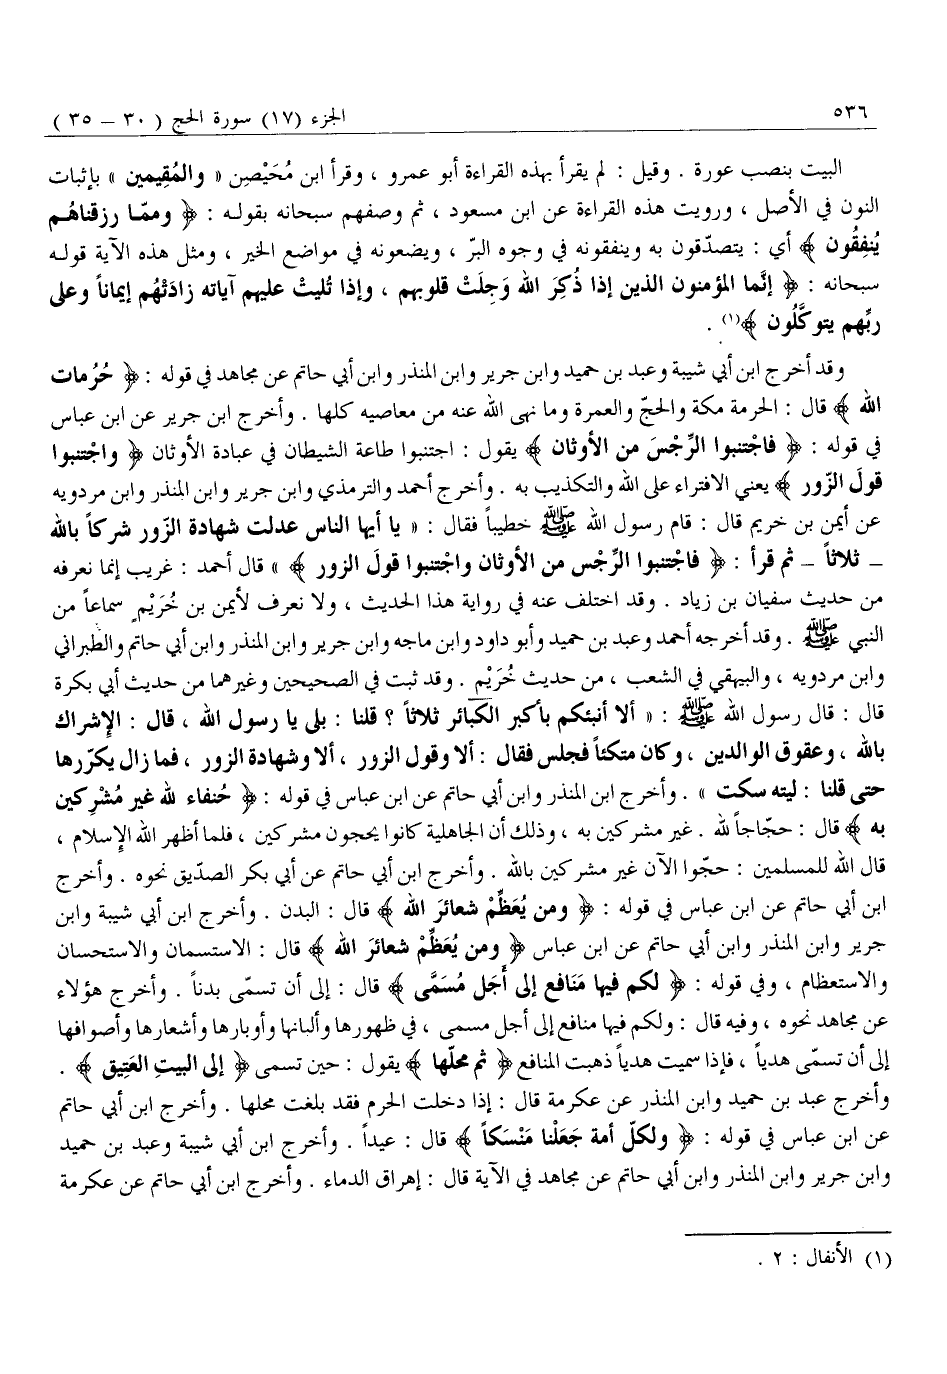 ٥٣٦
الجزء (١٧) سورة الحج ( ٣٠ ــ ٣٥ )
البيت بنصب عورة . وقيل : لم يقرأ بهذه القراءة أبو عمرو ، وقرأ ابن مُحَيْصِن « والمُقِيمين » بإثبات
النون في الأصل ، ورويت هذه القراءة عن ابن مسعود ، ثم وصفهم سبحانه بقوله : ﴿ وممّا رزقناهُـم
يُنفِقُون ﴾ أي : يتصدّقون به وينفقونه في وجوه البرّ ، ويضعونه في مواضع الخير ، ومثل هذه الآية قوله
سبحانه : ﴿ إنَّما المؤمنون الذين إذا ذُكِرَ الله وَجِلَتْ قلوبهم ، وإذا تُليتْ عليهم آياته زادَتْهُم إيماناً وعلى
ربِّهم يتوكَّلُون ﴾(١) .
وقد أخرج ابن أبي شيبة وعبد بن حميد وابن جرير وابن المنذر وابن أبي حاتم عن مجاهد في قوله : ﴿ حُرُمات
الله ﴾ قال : الحرمة مكة والحجّ والعمرة وما نهى الله عنه من معاصيه كلها . وأخرج ابن جرير عن ابن عباس
في قوله : ﴿ فاجْتنبوا الرِّجْسَ من الأوثان ﴾ يقول : اجتنبوا طاعة الشيطان في عبادة الأوثان ﴿ واجْتنبوا
قولَ الزّور ﴾ يعني الافتراء على الله والتكذيب به . وأخرج أحمد والترمذي وابن جرير وابن المنذر وابن مردويه
عن أيمن بن خريم قال : قام رسول الله ﷺ خطيباً فقال : « يا أيها الناس عدلت شهادة الزّور شركاً بالله
ــ ثلاثاً ــ ثم قرأ : ﴿ فاجْتنبوا الرِّجْس من الأوثان واجْتنبوا قولَ الزور ﴾ » قال أحمد : غريب إنما نعرفه
من حديث سفيان بن زياد . وقد اختلف عنه في رواية هذا الحديث ، ولا نعرف لأيمن بن خُرَيْمٍ سماعاً من
النبي ﷺ . وقد أخرجه أحمد وعبد بن حميد وأبو داود وابن ماجه وابن جرير وابن المنذر وابن أبي حاتم والطبراني
وابن مردويه ، والبيهقي في الشعب ، من حديث خُرَيْم . وقد ثبت في الصحيحين وغيرهما من حديث أبي بكرة
قال : قال رسول الله ﷺ : « ألا أنبئكم بأكبر الكبائر ثلاثاً ؟ قلنا : بلى يا رسول الله ، قال : الإشراك
بالله ، وعقوق الوالدين ، وكان متكئاً فجلس فقال : ألا وقول الزور ، ألا وشهادة الزور ، فما زال يكرّرها
حتى قلنا : ليته سكت » . وأخرج ابن المنذر وابن أبي حاتم عن ابن عباس في قوله : ﴿ حُنفاء لله غير مُشْرِكين
به ﴾ قال : حجّاجاً لله . غير مشركين به ، وذلك أن الجاهلية كانوا يحجون مشركين ، فلما أظهر الله الإسلام ،
قال الله للمسلمين : حجّوا الآن غير مشركين بالله . وأخرج ابن أبي حاتم عن أبي بكر الصدّيق نحوه . وأخرج
ابن أبي حاتم عن ابن عباس في قوله : ﴿ ومن يُعَظِّمْ شعائرَ الله ﴾ قال : البدن . وأخرج ابن أبي شيبة وابن
جرير وابن المنذر وابن أبي حاتم عن ابن عباس ﴿ ومن يُعَظِّمْ شعائرَ الله ﴾ قال : الاستسمان والاستحسان
والاستعظام ، وفي قوله : ﴿ لكم فيها مَنَافع إلى أَجَل مُسَمَّى ﴾ قال : إلى أن تسمّى بدناً . وأخرج هؤلاء
عن مجاهد نحوه ، وفيه قال : ولكم فيها منافع إلى أجل مسمى ، في ظهورها وألبانها وأوبارها وأشعارها وأصوافها
إلى أن تسمّى هدياً ، فإذا سميت هدياً ذهبت المنافع ﴿ ثم محلّها ﴾ يقول : حين تسمى ﴿ إلى البيتِ العَتِيق ﴾ .
وأخرج عبد بن حميد وابن المنذر عن عكرمة قال : إذا دخلت الحرم فقد بلغت محلها . وأخرج ابن أبي حاتم
عن ابن عباس في قوله : ﴿ ولكلّ أمة جَعَلْنا مَنْسَكاً ﴾ قال : عيداً . وأخرج ابن أبي شيبة وعبد بن حميد
وابن جرير وابن المنذر وابن أبي حاتم عن مجاهد في الآية قال : إهراق الدماء . وأخرج ابن أبي حاتم عن عكرمة
(١) الأنفال : ٢ .